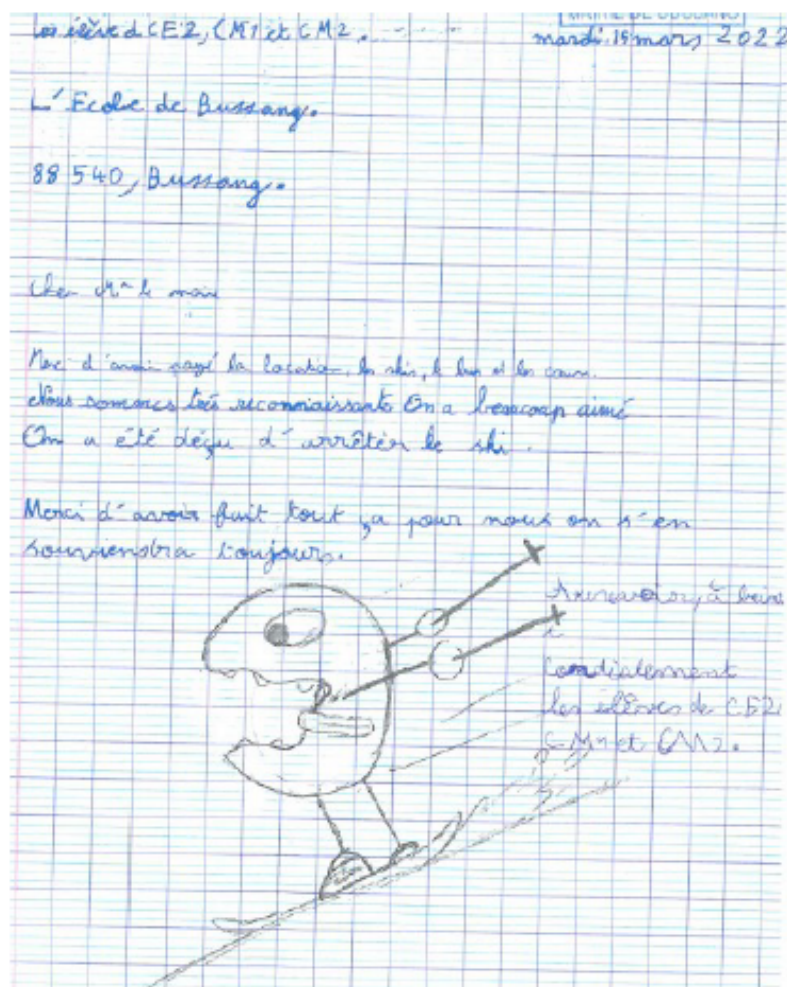 Les élève d CE2, CM1 et CM2. mardi 15 mars 2022
L'Ecole de Bussang.
88 540, Bussang.
Cher Mr le maire
Merci d'avoir payé la location, les skis, le bus et les cours.
Nous sommes très reconnaissants On a beaucoup aimé
On a été déçu d'arrêter le ski.
Merci d'avoir fait tout ça pour nous on s'en
souviendra toujours.
Aurevoir, à
Cordialement
les élèves de CE2,
CM1 et CM2.